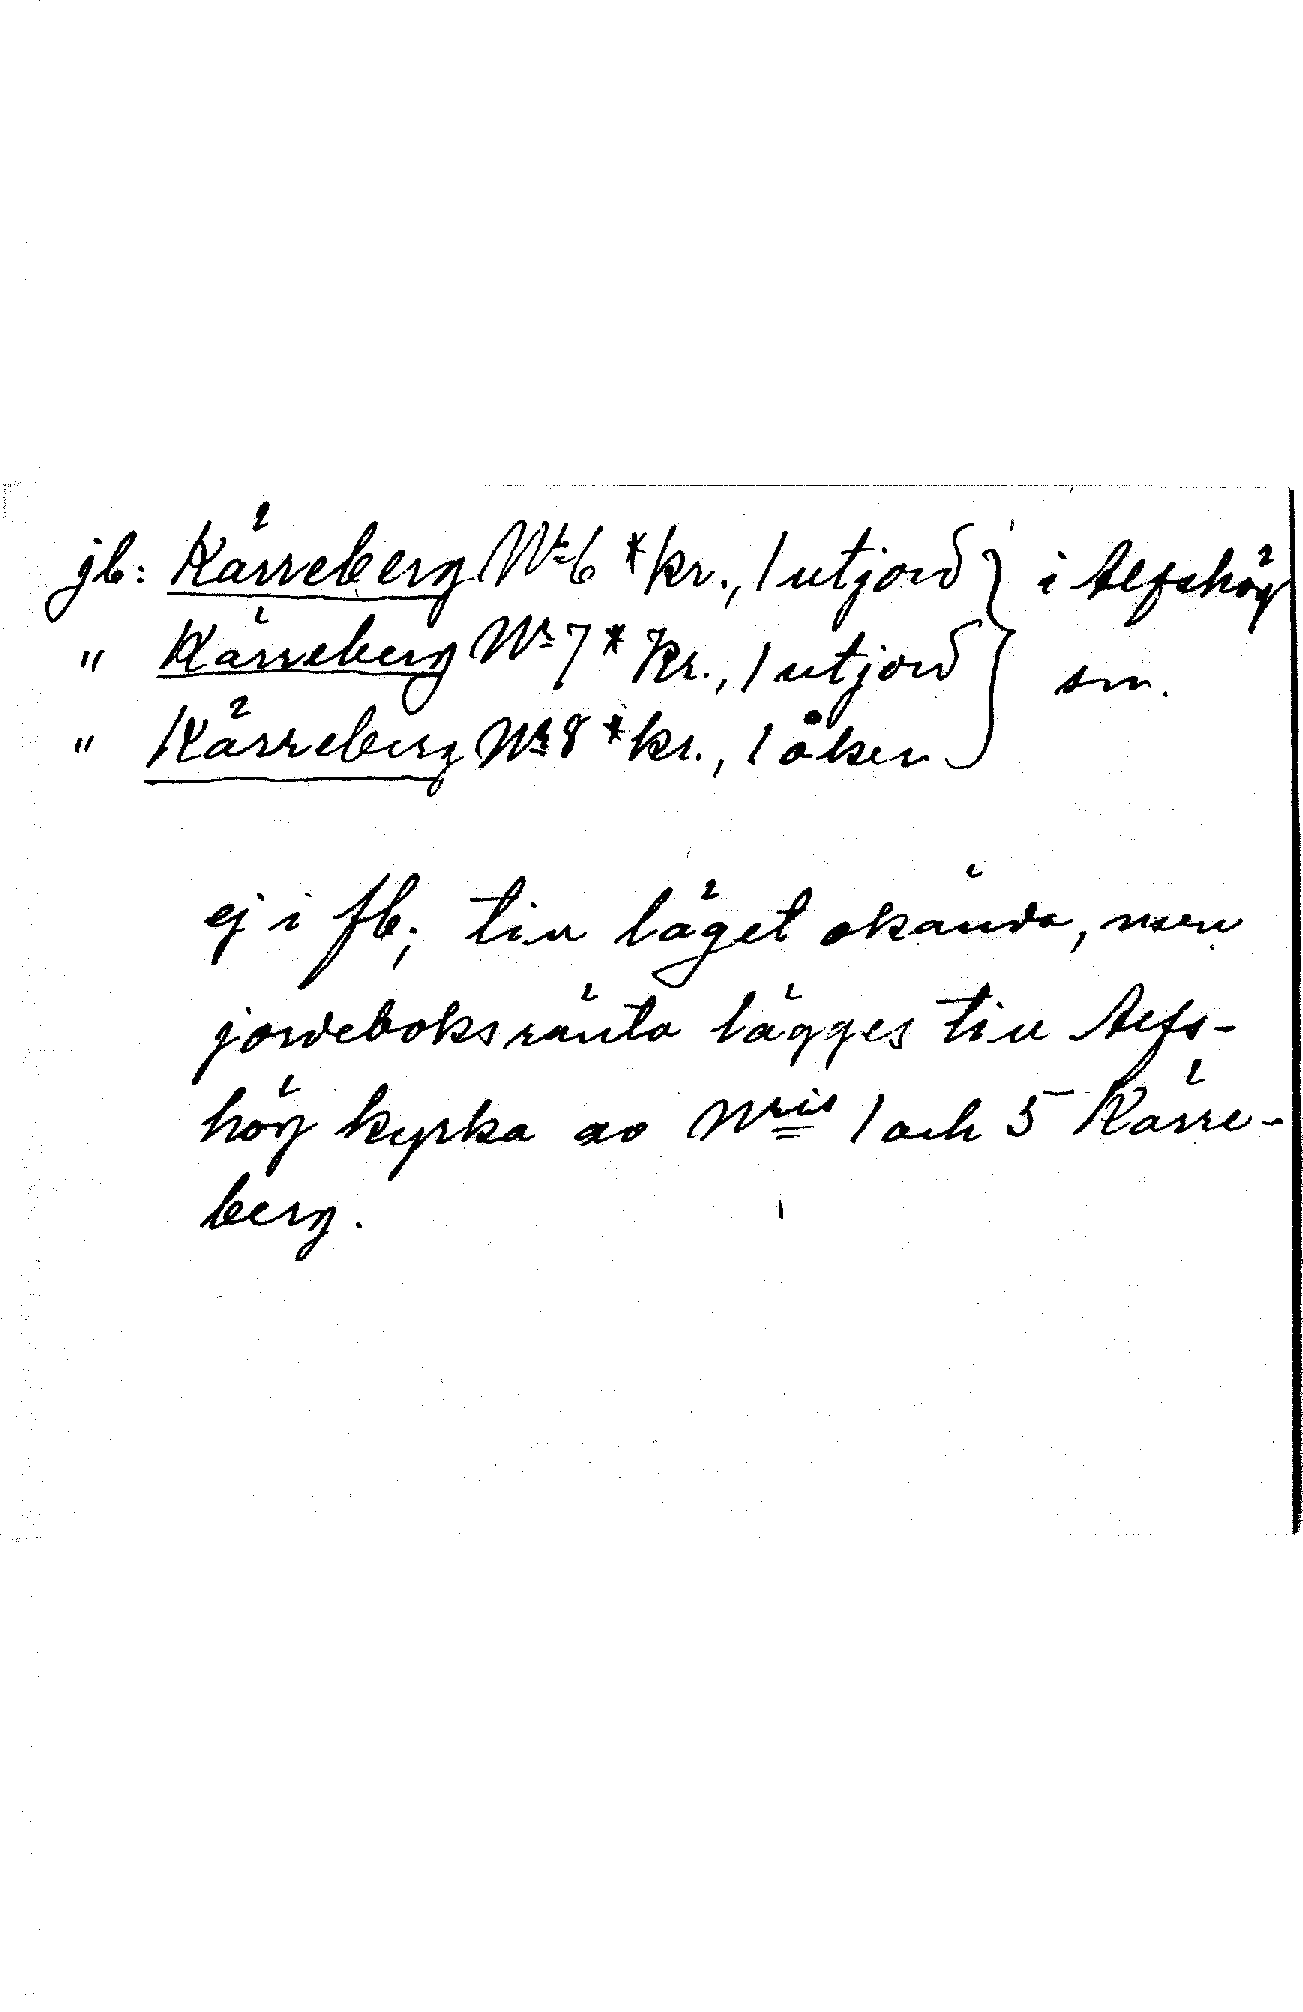 jb: Kärreberg Nr 6 *kr., 1 utjord } i Alfshög
" Kärreberg Nr 7 * kr., 1 utjord } sn.
" Kärreberg Nr 8 * kr., 1 åker }
ej i fb; till läget okända, men
jordeboksränta lägges till Alfs-
hög kyrka av Nris 1 och 5 Kärre-
berg.